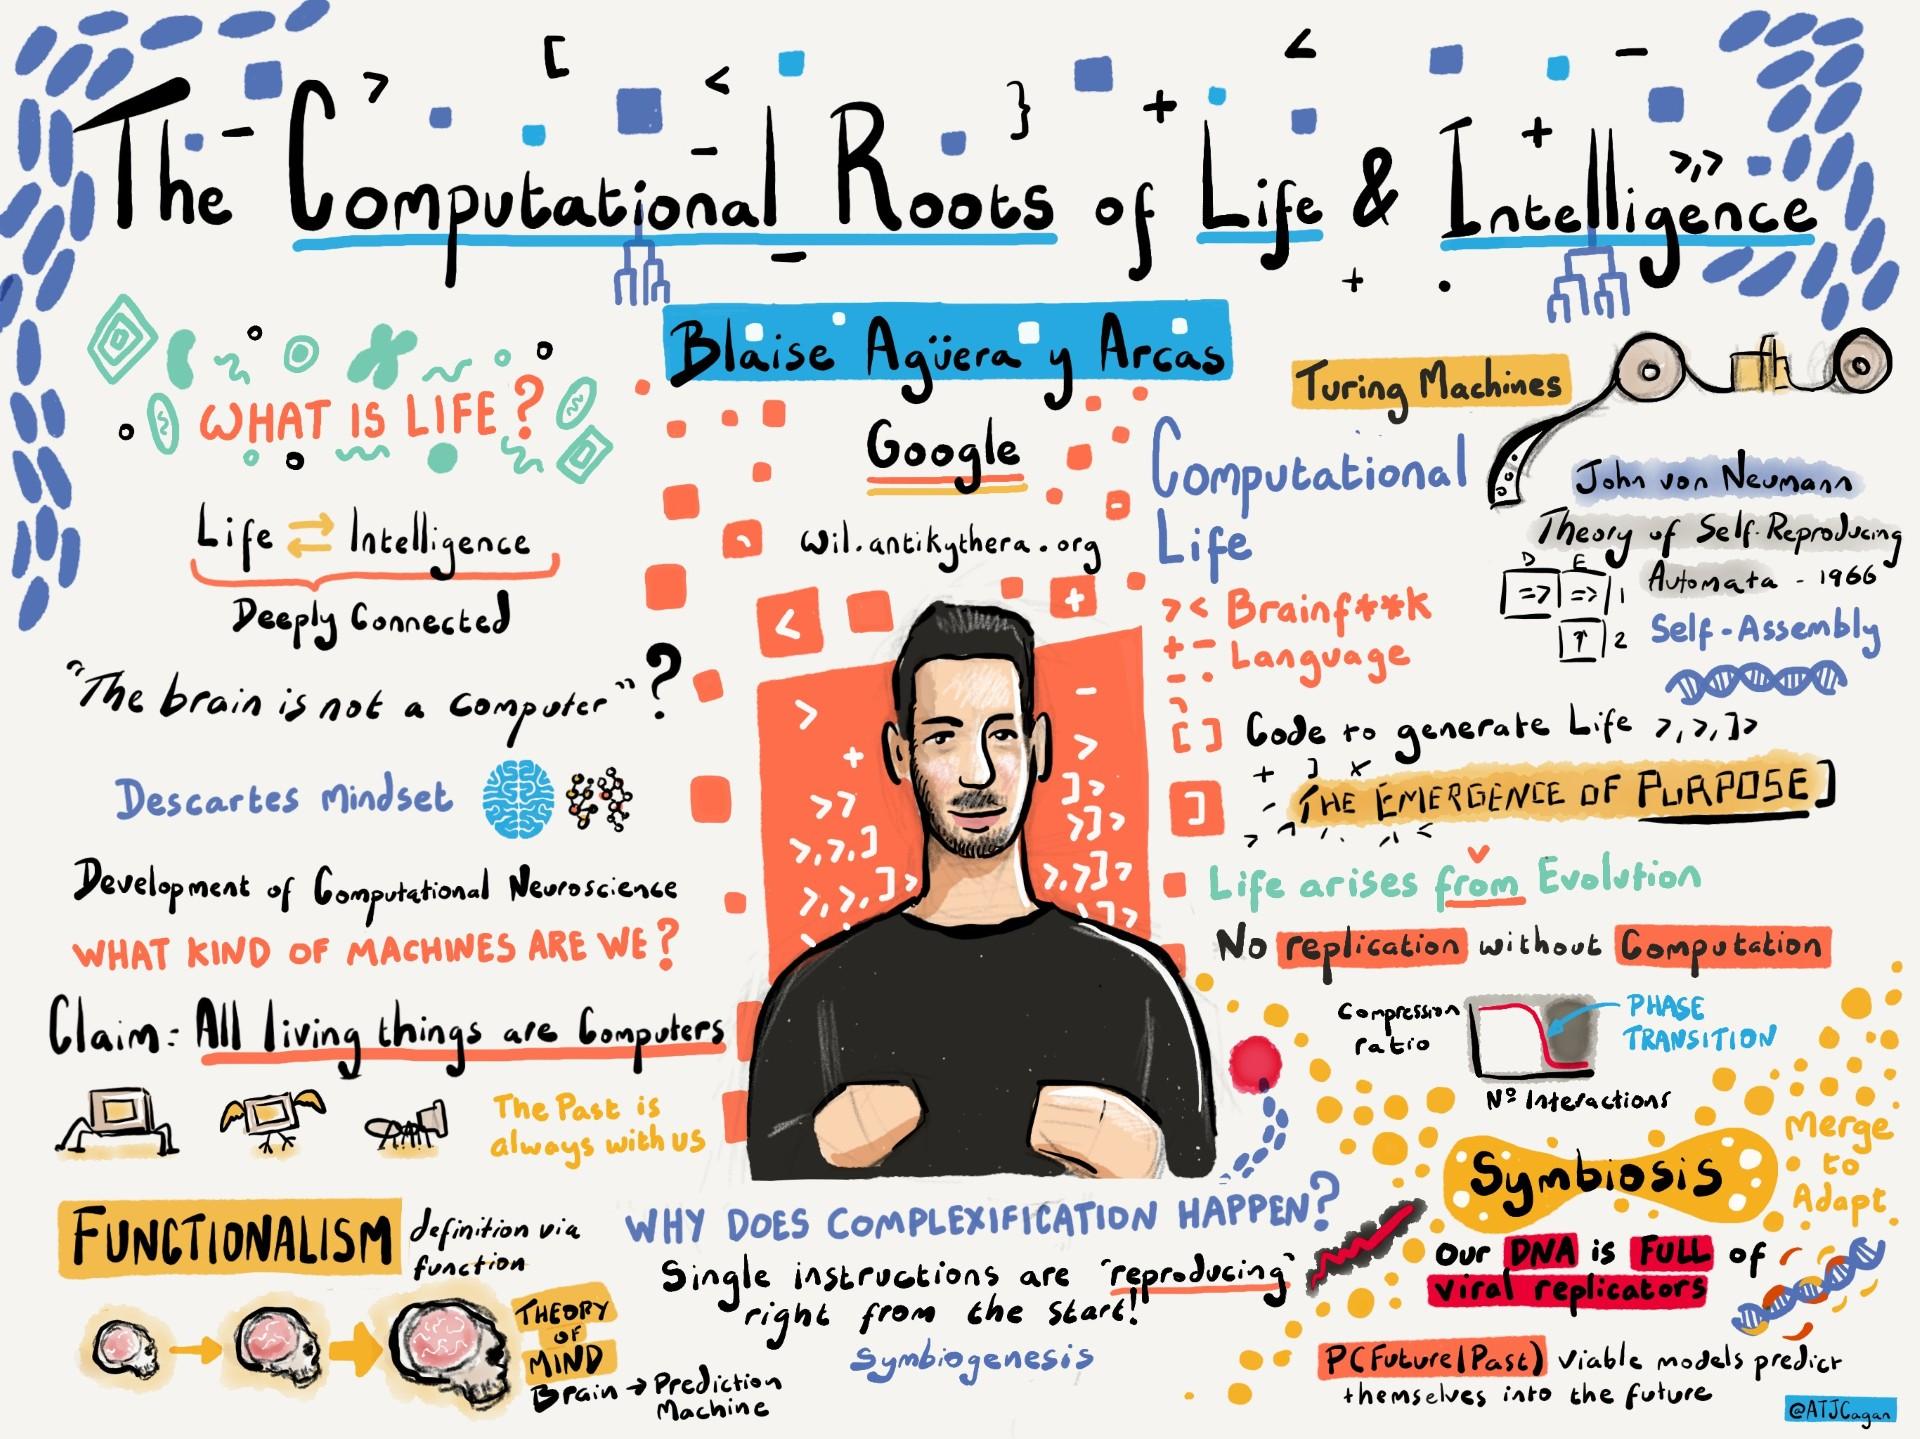 The Computational Roots of Life & Intelligence
Blaise Agüera y Arcas
Google
wil.antikythera.org
WHAT IS LIFE?
Life ⇄ Intelligence
Deeply Connected
"The brain is not a computer"?
Descartes mindset
Development of Computational Neuroscience
WHAT KIND OF MACHINES ARE WE?
Claim: All living things are Computers
The Past is
always with us
FUNCTIONALISM
definition via
function
THEORY
OF
MIND
Brain → Prediction
Machine
WHY DOES COMPLEXIFICATION HAPPEN?
Single instructions are "reproducing"
right from the start!
Symbiogenesis
Turing Machines
John von Neumann
Theory of Self-Reproducing
Automata - 1966
D E
=> => 1
↑ 2
Self-Assembly
Computational
Life
>< Brainf**k
+ - Language
- .
[ ] Code to generate Life >,>,]>
THE EMERGENCE OF PURPOSE]
Life arises from Evolution
No replication without Computation
Compression
ratio
PHASE
TRANSITION
Nº Interactions
Symbiosis
Merge
to
Adapt
Our DNA is FULL of
viral replicators
P(Future|Past) Viable models predict
themselves into the future
@ATJCagan